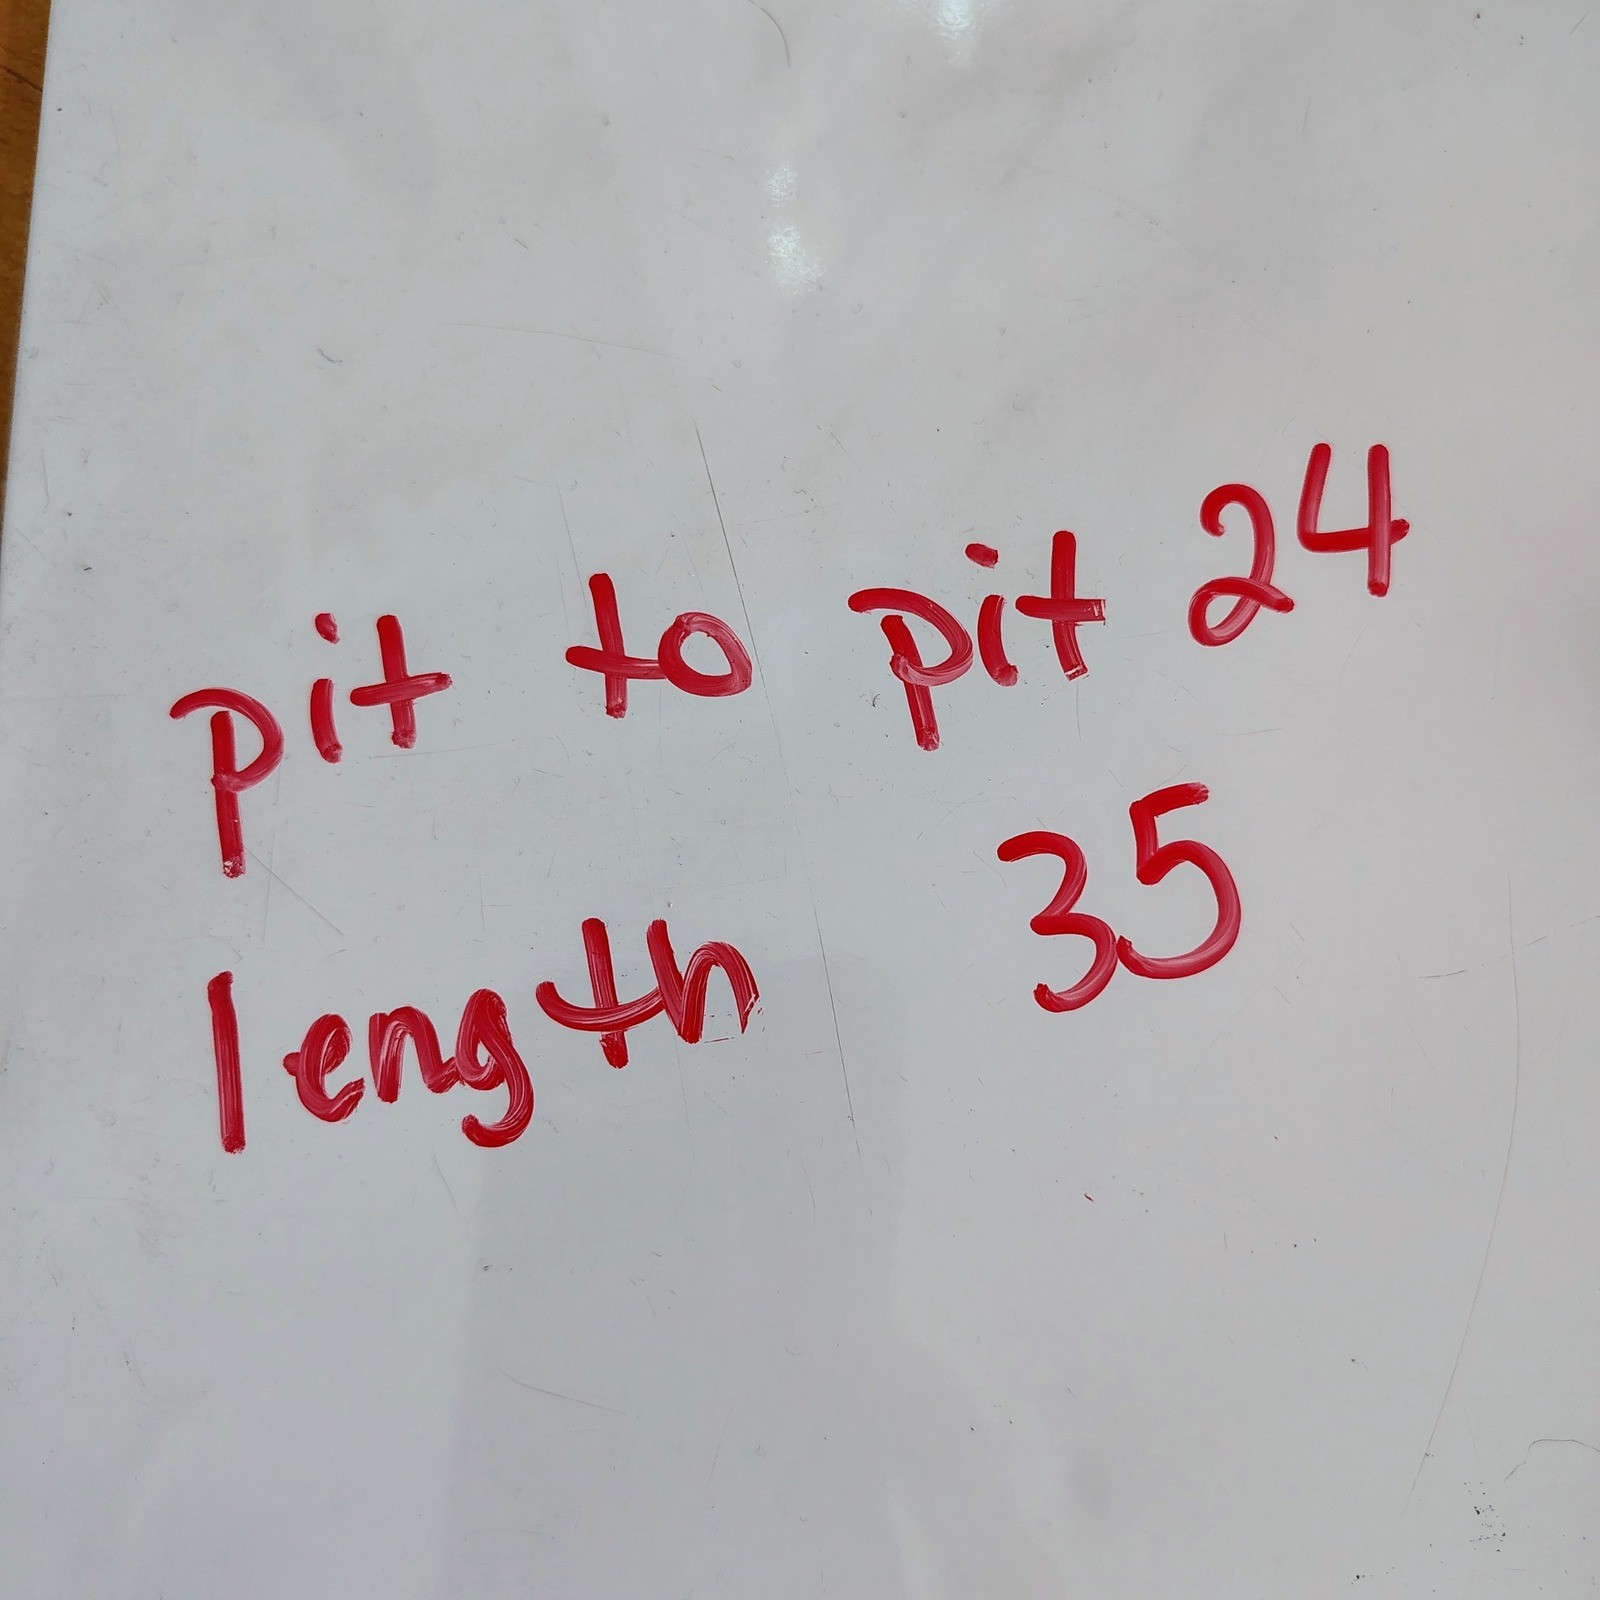 pit to pit 24
length 35